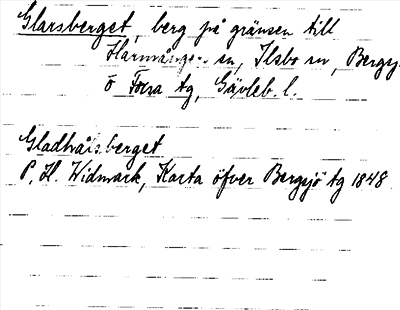 Glarsberget, berg på gränsen till
Harmånger sn, Ilsbo sn, Bergsj.
ö Forsa tg, Gävleb. l.
Gladhåisberget
P. H. Widmark, Karta öfver Bergsjö tg 1848.